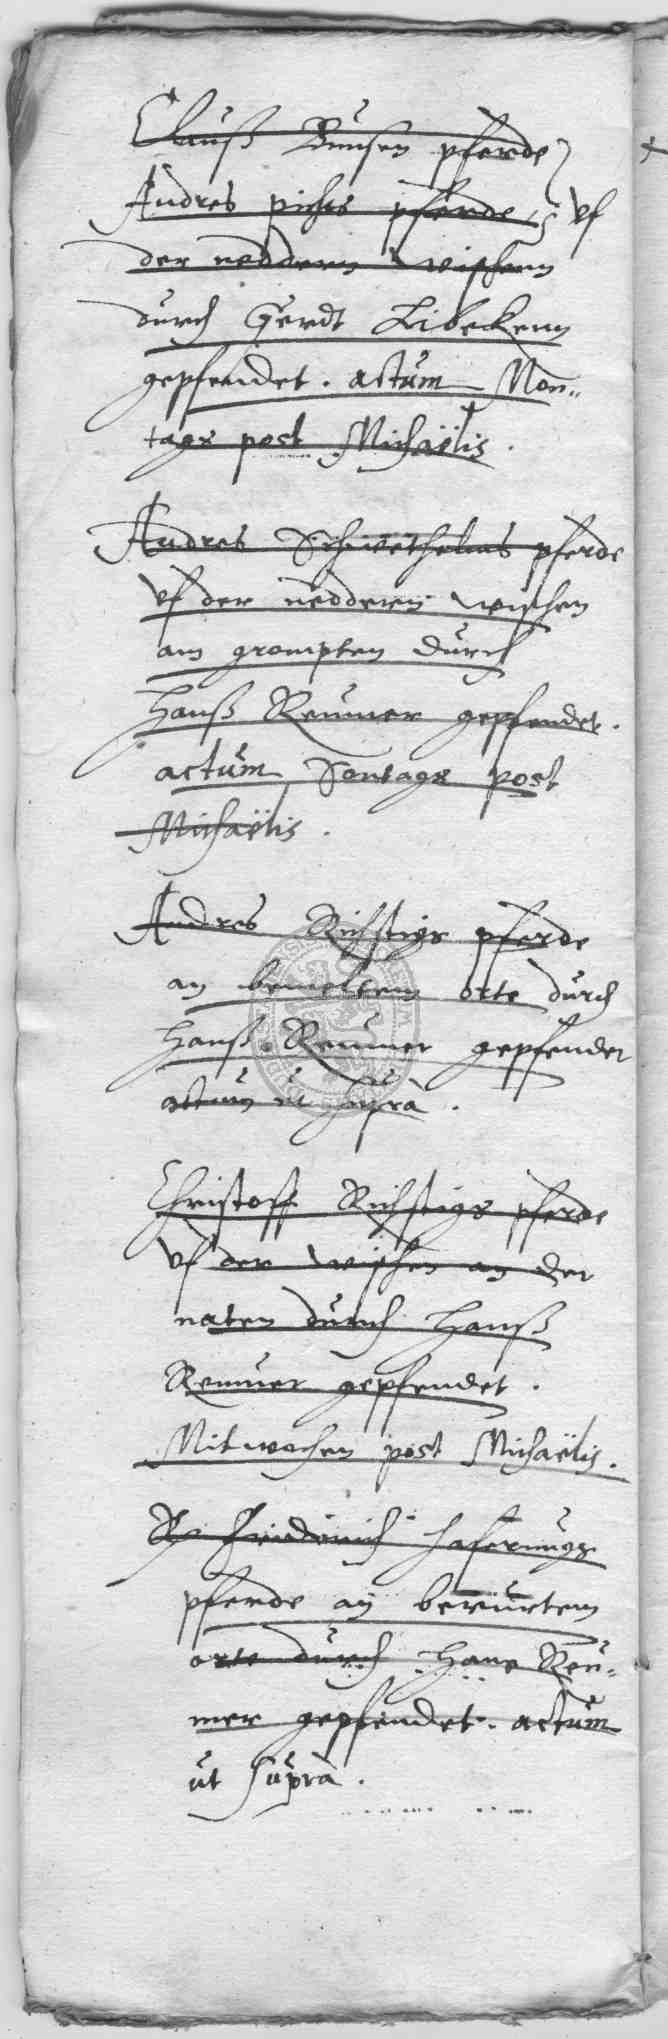 Clauß Bunsen pferde
Andres pichts pferde, uf
der neddern wischenn
durch Gerdt Libekenn
gepfendet. actum Mon=
tags post Michaëlis.
Andres Schwethelms pferde
uf der neddern wischen
am grompken durch
Hanß Reumer gepfendet.
actum Sontags post
Michaëlis.
Andres Richstigs pferde
an bemeltem orte durch
Hanß Reumer gepfendet
actum ut supra.
Christoff Richstigs pferde
uf der wischen an der
naten durch Hanß
Reumer gepfendet.
Mitwochen post Michaëlis.
Friderich Hafernugs
pferde an berurtem
orte durch Hans Reu=
mer gepfendet. actum
ut supra.